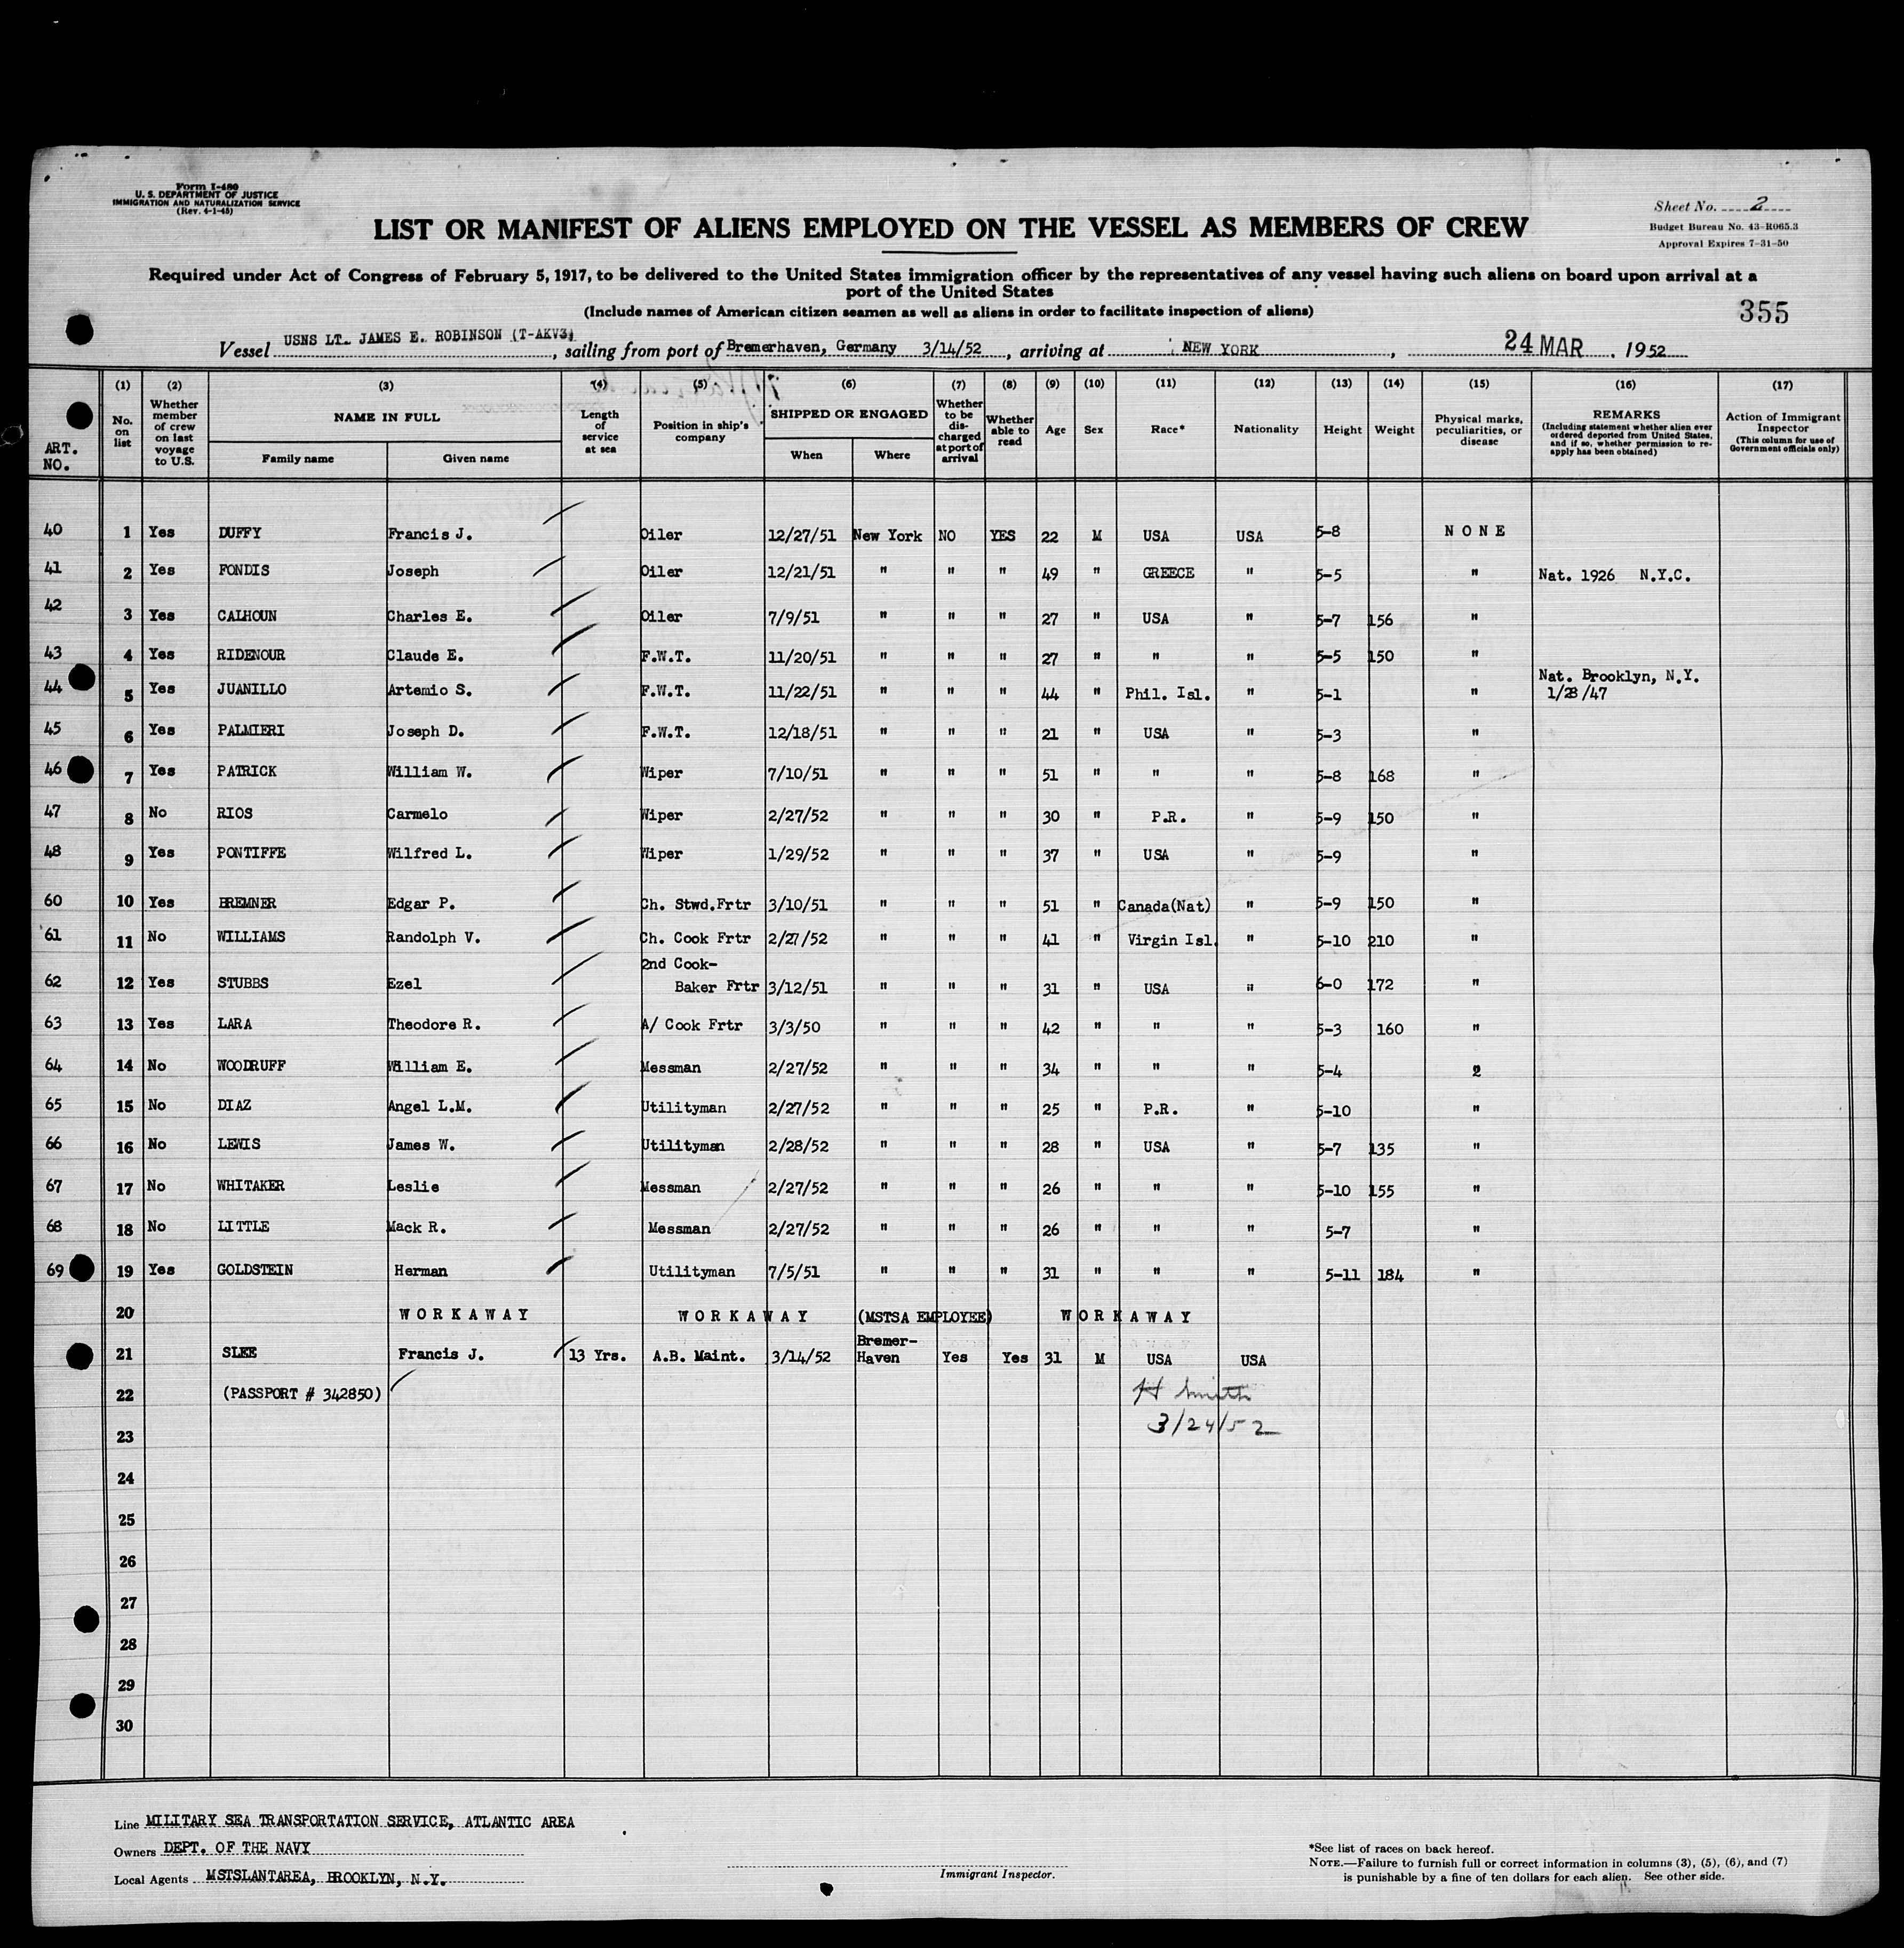 Form I-480
U. S. DEPARTMENT OF JUSTICE
IMMIGRATION AND NATURALIZATION SERVICE
(Rev. 4-1-45)
Sheet No. 2
Budget Bureau No. 43-R065.3
Approval Expires 7-31-50
LIST OR MANIFEST OF ALIENS EMPLOYED ON THE VESSEL AS MEMBERS OF CREW
Required under Act of Congress of February 5, 1917, to be delivered to the United States immigration officer by the representatives of any vessel having such aliens on board upon arrival at a
port of the United States
(Include names of American citizen seamen as well as aliens in order to facilitate inspection of aliens)
355
Vessel USNS LT. JAMES E. ROBINSON (T-AKV3), sailing from port of Bremerhaven, Germany 3/14/52, arriving at NEW YORK, 24 MAR, 1952
ART. NO. (1) No. on list (2) Whether member of crew on last voyage to U.S. (3) NAME IN FULL Family name Given name (4) Length of service at sea (5) Position in ship's company (6) SHIPPED OR ENGAGED When Where (7) Whether to be discharged at port of arrival (8) Whether able to read (9) Age (10) Sex (11) Race* (12) Nationality (13) Height (14) Weight (15) Physical marks, peculiarities, or disease (16) REMARKS (Including statement whether alien ever ordered deported from United States, and if so, whether permission to re-apply has been obtained) (17) Action of Immigrant Inspector (This column for use of Government officials only)
40 1 Yes DUFFY Francis J. Oiler 12/27/51 New York NO YES 22 M USA USA 5-8 NONE
41 2 Yes FONDIS Joseph Oiler 12/21/51 " " " 49 " GREECE " 5-5 " Nat. 1926 N.Y.C.
42 3 Yes CALHOUN Charles E. Oiler 7/9/51 " " " 27 " USA " 5-7 156 "
43 4 Yes RIDENOUR Claude E. F.W.T. 11/20/51 " " " 27 " " " 5-5 150 "
44 5 Yes JUANILLO Artemio S. F.W.T. 11/22/51 " " " 44 " Phil. Isl. " 5-1 " Nat. Brooklyn, N.Y. 1/28/47
45 6 Yes PALMIERI Joseph D. F.W.T. 12/18/51 " " " 21 " USA " 5-3 "
46 7 Yes PATRICK William W. Wiper 7/10/51 " " " 51 " " " 5-8 168 "
47 8 No RIOS Carmelo Wiper 2/27/52 " " " 30 " P.R. " 5-9 150 "
48 9 Yes PONTIFFE Wilfred L. Wiper 1/29/52 " " " 37 " USA " 5-9 "
60 10 Yes BREMNER Edgar P. Ch. Stwd.Frtr 3/10/51 " " " 51 " Canada(Nat) " 5-9 150 "
61 11 No WILLIAMS Randolph V. Ch. Cook Frtr 2/27/52 " " " 41 " Virgin Isl. " 5-10 210 "
62 12 Yes STUBBS Ezel 2nd Cook- Baker Frtr 3/12/51 " " " 31 " USA " 6-0 172 "
63 13 Yes LARA Theodore R. A/ Cook Frtr 3/3/50 " " " 42 " " " 5-3 160 "
64 14 No WOODRUFF William E. Messman 2/27/52 " " " 34 " " " 5-4 2
65 15 No DIAZ Angel L.M. Utilityman 2/27/52 " " " 25 " P.R. " 5-10 "
66 16 No LEWIS James W. Utilityman 2/28/52 " " " 28 " USA " 5-7 135 "
67 17 No WHITAKER Leslie Messman 2/27/52 " " " 26 " " " 5-10 155 "
68 18 No LITTLE Mack R. Messman 2/27/52 " " " 26 " " " 5-7 "
69 19 Yes GOLDSTEIN Herman Utilityman 7/5/51 " " " 31 " " " 5-11 184 "
20 WORKAWAY WORKAWAY (MSTSA EMPLOYEE) WORKAWAY
21 SLEE Francis J. 13 Yrs. A.B. Maint. 3/14/52 Bremer-Haven Yes Yes 31 M USA USA
22 (PASSPORT # 342850) H Smith
23 3/24/52
24
25
26
27
28
29
30
Line MILITARY SEA TRANSPORTATION SERVICE, ATLANTIC AREA
Owners DEPT. OF THE NAVY
Local Agents MSTSLANTAREA, BROOKLYN, N.Y.
Immigrant Inspector.
*See list of races on back hereof.
NOTE.—Failure to furnish full or correct information in columns (3), (5), (6), and (7)
is punishable by a fine of ten dollars for each alien. See other side.